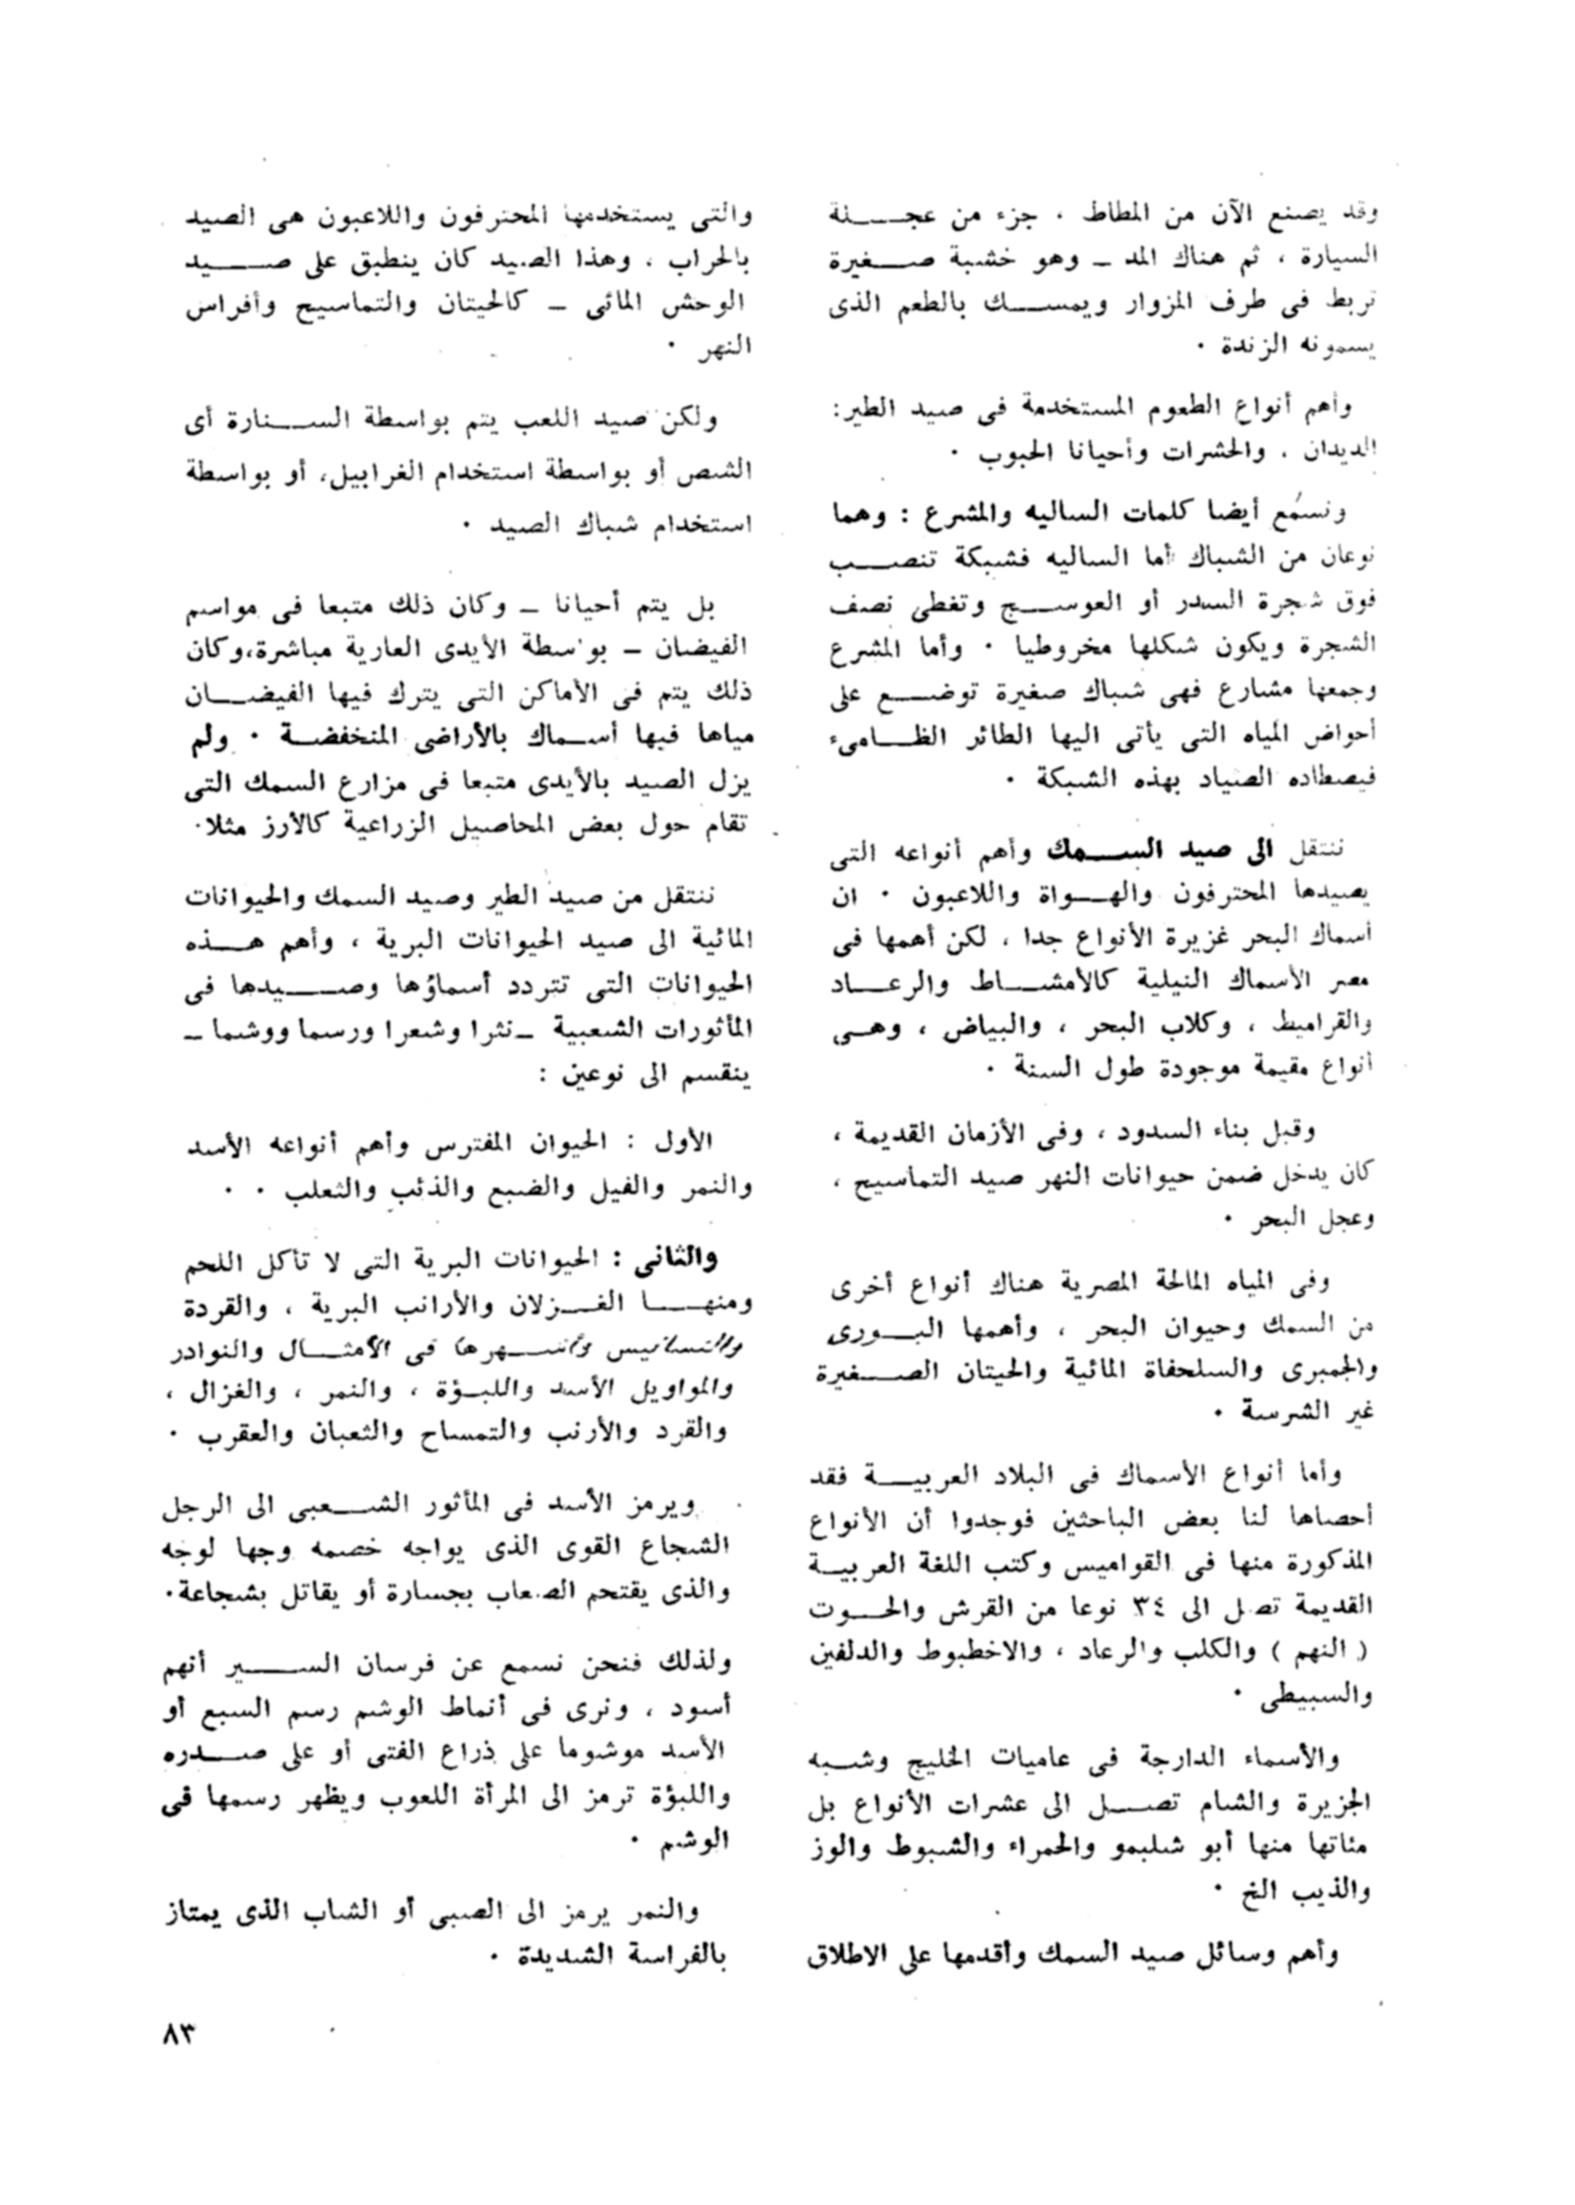 وقد يصنع الآن من المطاط ، جزء من عجلة
السيارة ، ثم هناك المد – وهو خشبة صغيرة
تربط فى طرف المزوار ويمسك بالطعم الذى
يسمونه الزندة ·
وأهم أنواع الطعوم المستخدمة فى صيد الطير:
الديدان ، والحشرات وأحيانا الحبوب ·
ونسمع أيضا كلمات الساليه والمشرع : وهما
نوعان من الشباك أما الساليه فشبكة تنصب
فوق شجرة السدر أو العوسج وتغطى نصف
الشجرة ويكون شكلها مخروطيا · وأما المشرع
وجمعها مشارع فهى شباك صغيرة توضع على
أحواض المياه التى يأتى اليها الطائر الظامىء
فيصطاده الصياد بهذه الشبكة ·
ننتقل الى صيد السمك وأهم أنواعه التى
يصيدها المحترفون والهواة واللاعبون · ان
أسماك البحر غزيرة الأنواع جدا ، لكن أهمها فى
مصر الأسماك النيلية كالأمشاط والرعاد
والقراميط ، وكلاب البحر ، والبياض ، وهى
أنواع مقيمة موجودة طول السنة ·
وقبل بناء السدود ، وفى الأزمان القديمة ،
كان يدخل ضمن حيوانات النهر صيد التماسيح ،
وعجل البحر ·
وفى المياه المالحة المصرية هناك أنواع أخرى
من السمك وحيوان البحر ، وأهمها البورى
والجمبرى والسلحفاة المائية والحيتان الصغيرة
غير الشرسة ·
وأما أنواع الأسماك فى البلاد العربية فقد
أحصاها لنا بعض الباحثين فوجدوا أن الأنواع
المذكورة منها فى القواميس وكتب اللغة العربية
القديمة تصل الى ٣٤ نوعا من القرش والحوت
( النهم ) والكلب والرعاد ، والاخطبوط والدلفين
والسبيطى ·
والأسماء الدارجة فى عاميات الخليج وشبه
الجزيرة والشام تصل الى عشرات الأنواع بل
مئاتها منها أبو شليمو والحمراء والشبوط والوز
والذيب الخ ·
وأهم وسائل صيد السمك وأقدمها على الاطلاق
والتى يستخدمها المحترفون واللاعبون هى الصيد
بالحراب ، وهذا الصيد كان ينطبق على صيد
الوحش المائى – كالحيتان والتماسيح وأفراس
النهر ·
ولكن صيد اللعب يتم بواسطة السنارة أى
الشص أو بواسطة استخدام الغرابيل، أو بواسطة
استخدام شباك الصيد ·
بل يتم أحيانا – وكان ذلك متبعا فى مواسم
الفيضان – بواسطة الأيدى العارية مباشرة،وكان
ذلك يتم فى الأماكن التى يترك فيها الفيضان
مياها فيها أسماك بالأراضى المنخفضة · ولم
يزل الصيد بالأيدى متبعا فى مزارع السمك التى
تقام حول بعض المحاصيل الزراعية كالأرز مثلا·
ننتقل من صيد الطير وصيد السمك والحيوانات
المائية الى صيد الحيوانات البرية ، وأهم هذه
الحيوانات التى تتردد أسماؤها وصيدها فى
المأثورات الشعبية –نثرا وشعرا ورسما ووشما –
ينقسم الى نوعين :
الأول : الحيوان المفترس وأهم أنواعه الأسد
والنمر والفيل والضبع والذئب والثعلب · ·
والثانى : الحيوانات البرية التى لا تأكل اللحم
ومنها الغزلان والأرانب البرية ، والقردة
والنسانيس وأشهرها فى الأمثال والنوادر
والمواويل الأسد واللبؤة ، والنمر ، والغزال ،
والقرد والأرنب والتمساح والثعبان والعقرب ·
ويرمز الأسد فى المأثور الشعبى الى الرجل
الشجاع القوى الذى يواجه خصمه وجها لوجه
والذى يقتحم الصعاب بجسارة أو يقاتل بشجاعة·
ولذلك فنحن نسمع عن فرسان السير أنهم
أسود ، ونرى فى أنماط الوشم رسم السبع أو
الأسد موشوما على ذراع الفتى أو على صدره
واللبؤة ترمز الى المرأة اللعوب ويظهر رسمها فى
الوشم ·
والنمر يرمز الى الصبى أو الشاب الذى يمتاز
بالفراسة الشديدة ·
٨٣